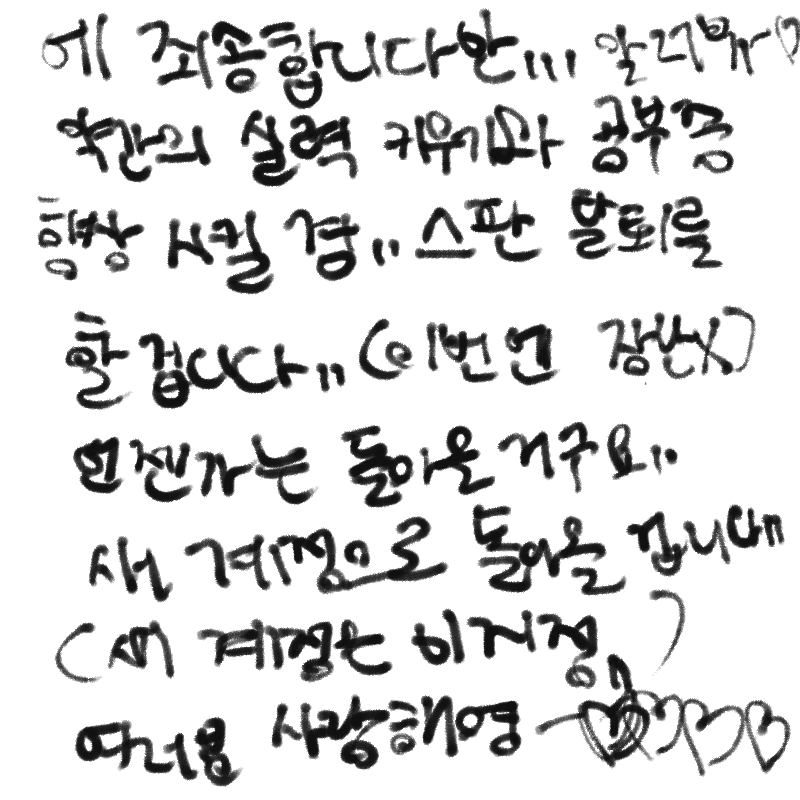 에 죄송합니다만,,, 알려봐♡
약간의 실력 키우기와 공부 증
향상 시킬 겸,, 스판 탈퇴를
할 겁니다,, (이번엔 장난X)
언젠가는 돌아올거구요,.
새 계정으로 돌아올 겁니다
(새 계정은 비지정)
여러분 사랑해영 ♡♡♡♡